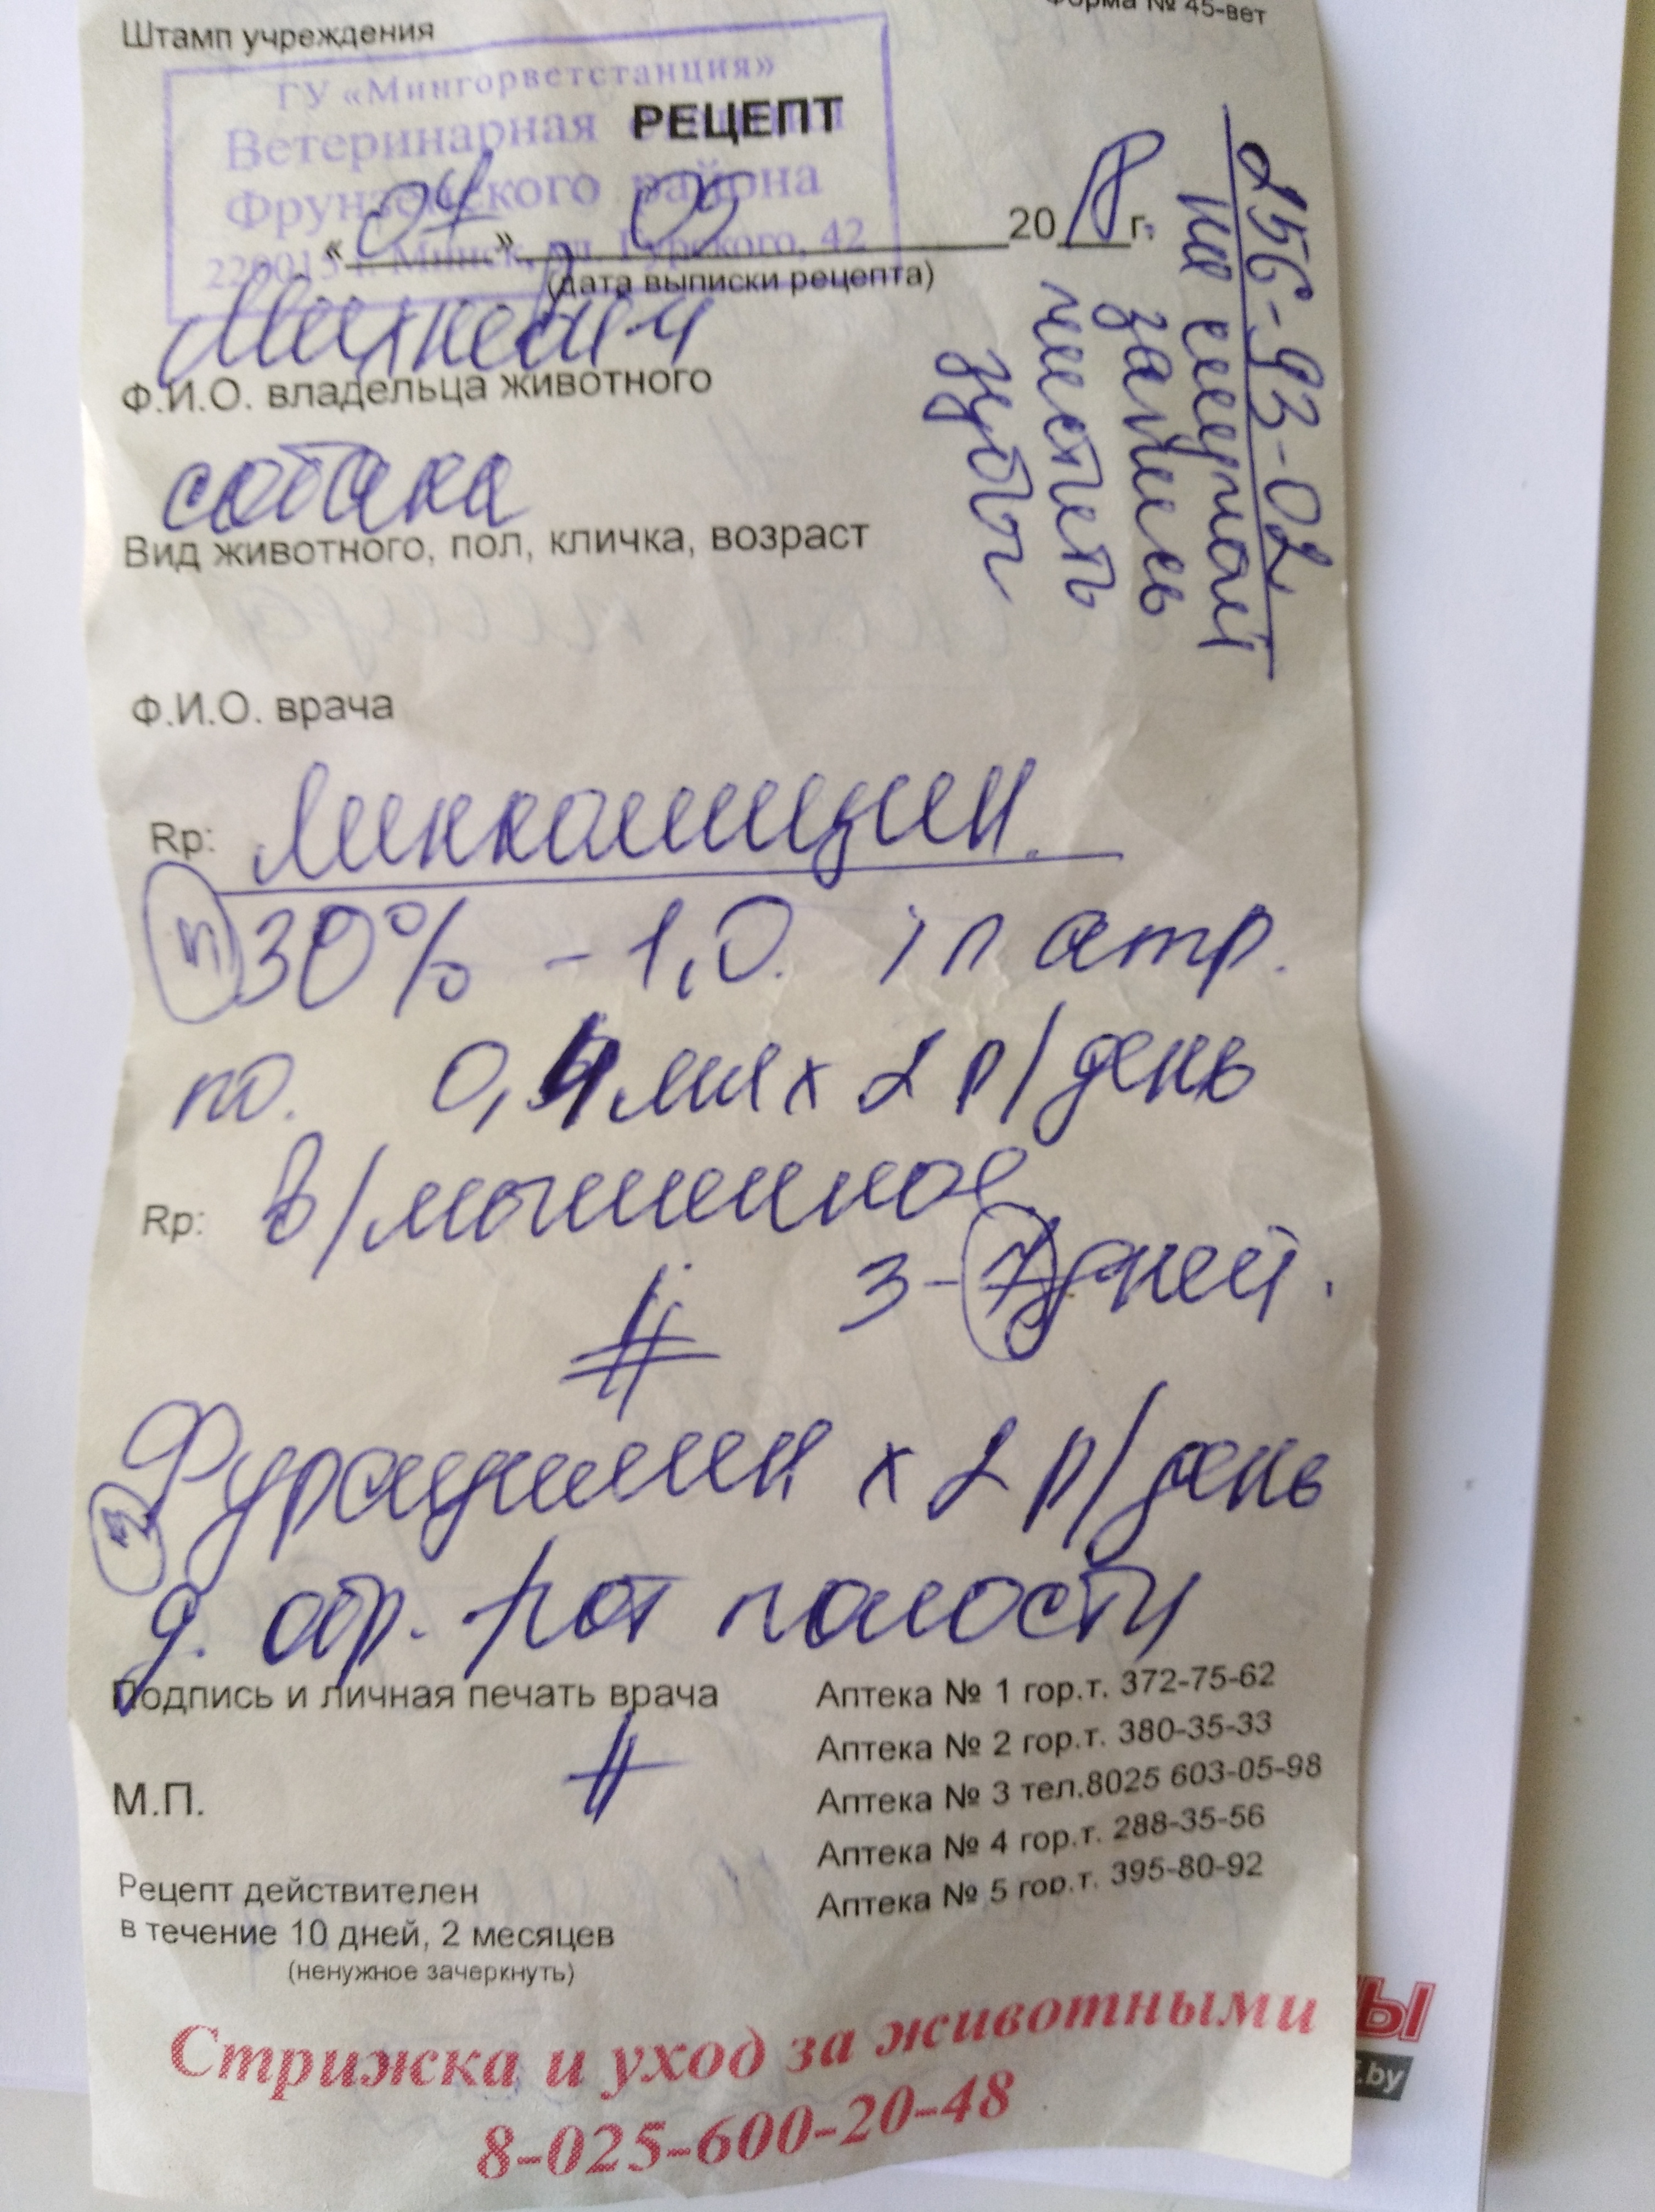 Форма № 45-вет
Штамп учреждения
ГУ «Мингорветстанция»
Ветеринарная
РЕЦЕПТ
Фрунзенского района
220015 г. Минск, ул. Гурского, 42
« 04 » 05 2018 г.
(дата выписки рецепта)
Ф.И.О. владельца животного
собака
Вид животного, пол, кличка, возраст
Ф.И.О. врача
256-93-02
на
запись
чистить
зубы
Rp: Линкомицин.
30% - 1,0. in амр.
по. 0,4 мл х 2 р/день
Rp: в/мышечное
3-7 дней.
Фурацилин х 2 р/день
д. обр. рот полости
Подпись и личная печать врача
М.П.
Аптека № 1 гор.т. 372-75-62
Аптека № 2 гор.т. 380-35-33
Аптека № 3 тел.8025 603-05-98
Аптека № 4 гор.т. 288-35-56
Аптека № 5 гор.т. 395-80-92
Рецепт действителен
в течение 10 дней, 2 месяцев
(ненужное зачеркнуть)
Стрижка и уход за животными
8-025-600-20-48
Ы
.by